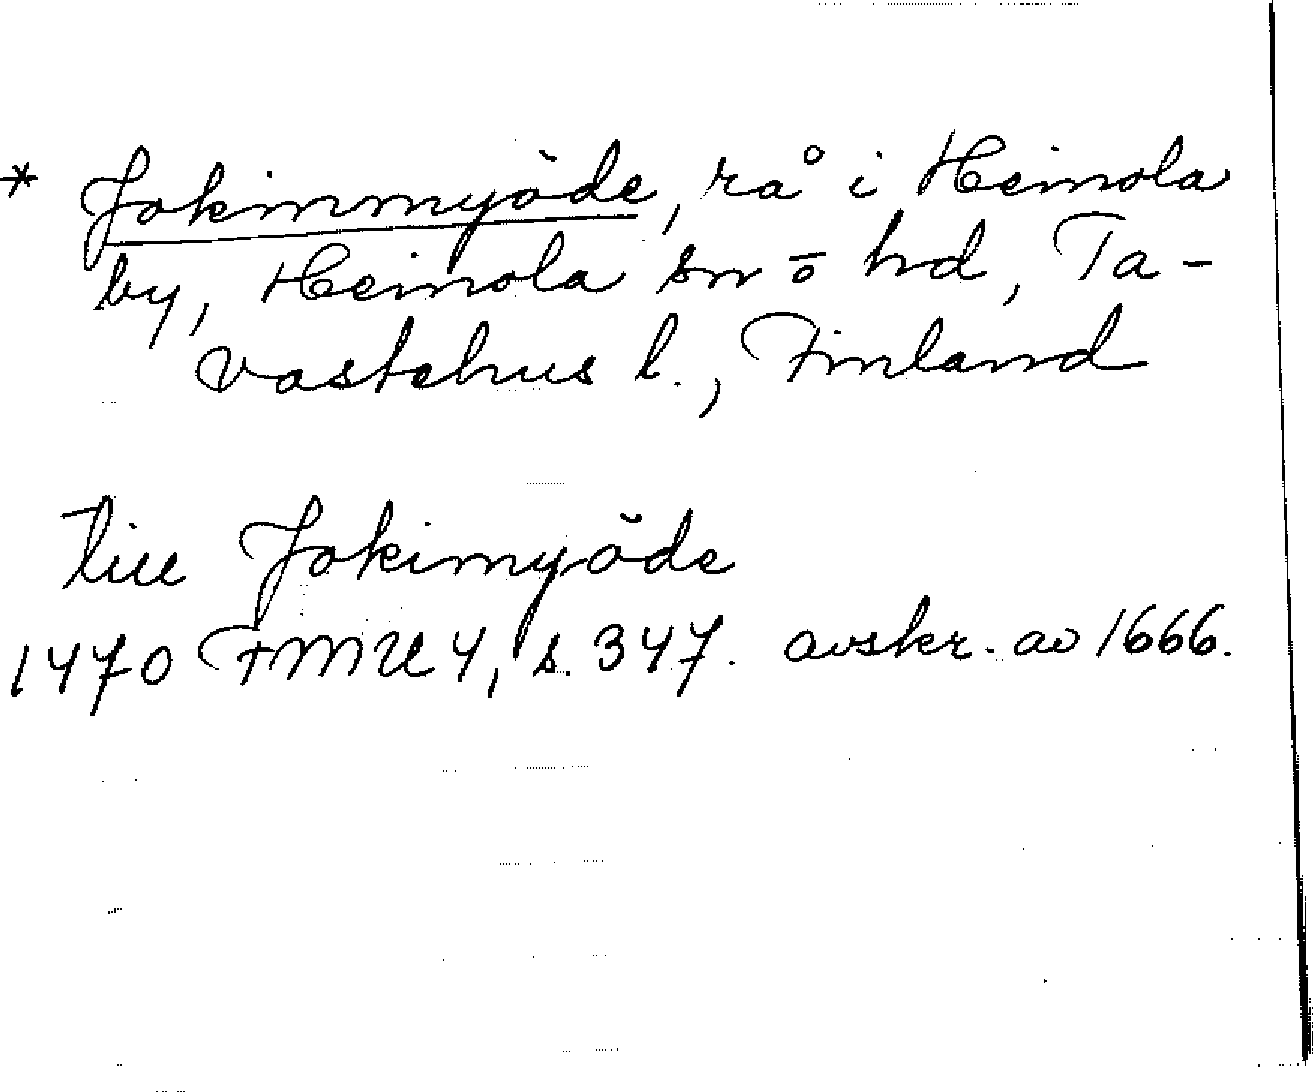 * Jokinmyöde, rå i Heinola
by, Heinola sn ō hd, Ta-
vastehus l., Finland
till Jokimyöde
1470 FMU 4, s. 347. avskr. av 1666.